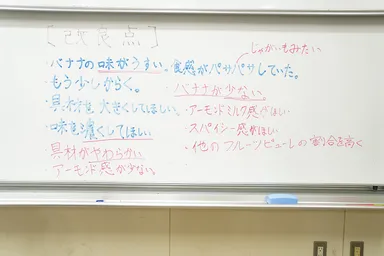 [改良点]
・バナナの味がうすい。
・もう少しからく。
・具材を大きくしてほしい。
・味を濃くしてほしい
・具材がやわらかい
・アーモンド感が少ない。
じゃがいもみたい
食感がパサパサしていた。
・バナナが少ない。
・アーモンドミルク感がほしい
・スパイシー感がほしい
・他のフルーツピューレの割合を高く